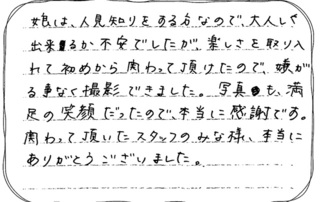 娘は、人見知りをする方なので、大人しく
出来るか不安でしたが、楽しさを取り入
れて初めから関わって頂けたので、嫌が
る事なく撮影できました。写真も、満
足の笑顔だったので、本当に感謝です。
関わって頂いたスタッフのみな様、本当に
ありがとうございました。